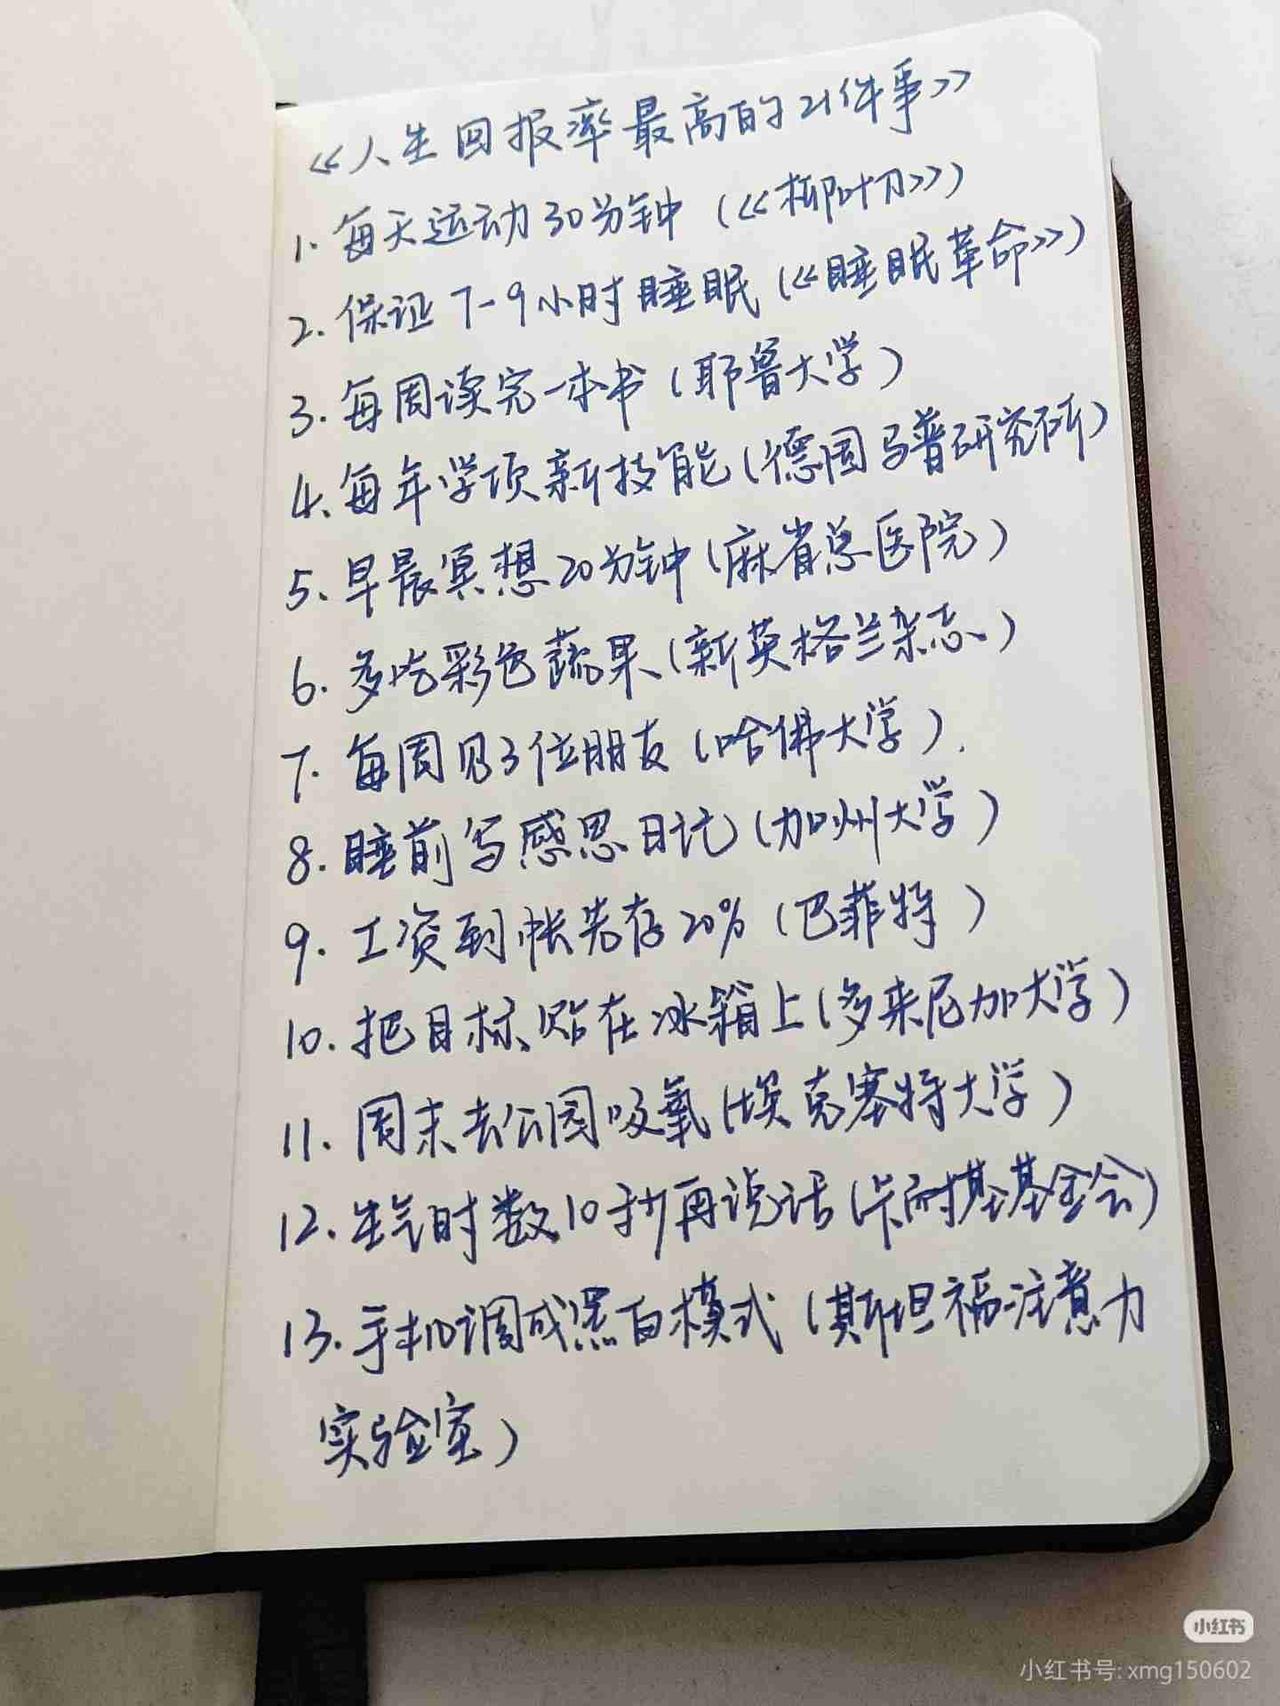 《人生回报率最高的21件事》
1. 每天运动30分钟（《柳叶刀》）
2. 保证7-9小时睡眠（《睡眠革命》）
3. 每周读完一本书（耶鲁大学）
4. 每年学项新技能（德国马普研究所）
5. 早晨冥想20分钟（麻省总医院）
6. 多吃彩色蔬果（新英格兰杂志）
7. 每周见3位朋友（哈佛大学）.
8. 睡前写感恩日记（加州大学）
9. 工资到帐先存20%（巴菲特）
10. 把目标贴在冰箱上（多来尼加大学）
11. 周末去公园吸氧（埃克塞特大学）
12. 生气时数10秒再说话（卡耐基基金会）
13. 手机调成黑白模式（斯坦福注意力
实验室）
小红书
小红书号: xmg150602